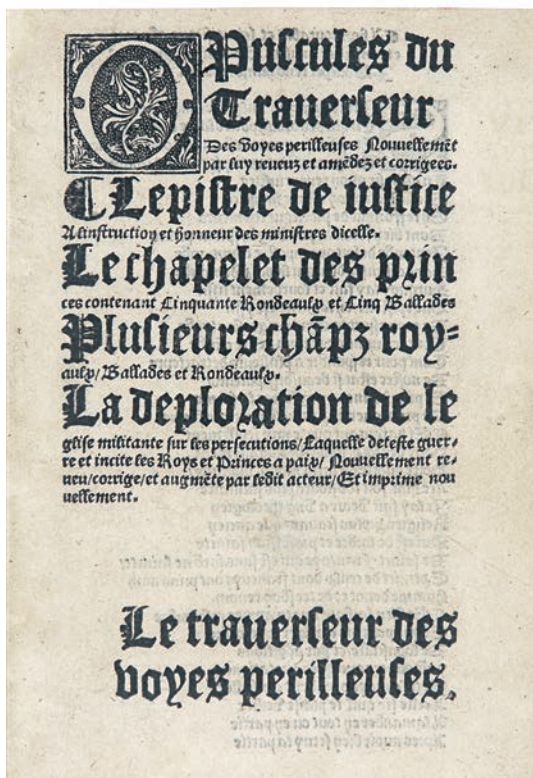 OPuscules du
Trauerseur
Des Voyes perilleuses Nouuellemẽt
par luy reueuz et amẽdez et corrigees.
¶ Lepistre de iustice
A linstruction et honneur des ministres dicelle.
Le chapelet des prin
ces contenant Cinquante Rondeaulx et Cinq Ballades
Plusieurs chãpz roy-
aulx/Ballades et Rondeaulx.
La deploration de le
glise militante sur les persecutions/Laquelle deteste guer-
re et incite les Roys et Princes a paix/Nouuellement re-
ueu/corrige/et augmẽte par ledit acteur/Et imprime nou
uellement.
Le trauerseur des
voyes perilleuses.